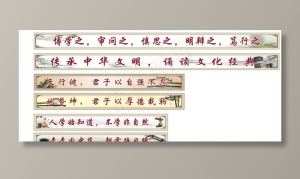 博学之，审问之，慎思之，明辩之，笃行之
传承中华文明，诵读文化经典
天行健，君子以自强不息
地势坤，君子以厚德载物
人学始知道，不学非自然